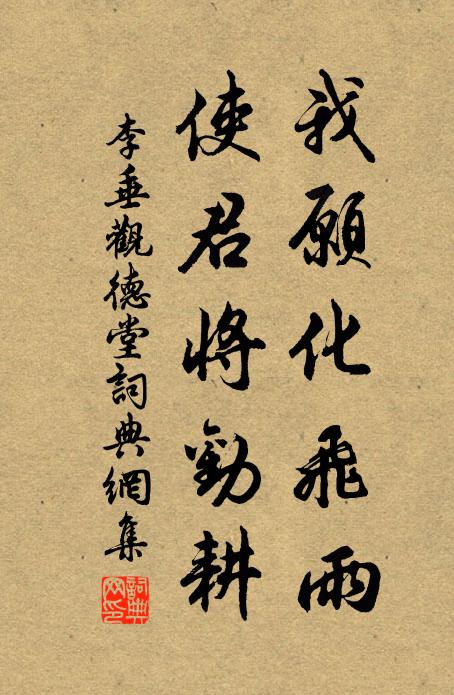 我願化飛雨
使君將勸耕
李垂觀德堂詞典網集
詞典
網印